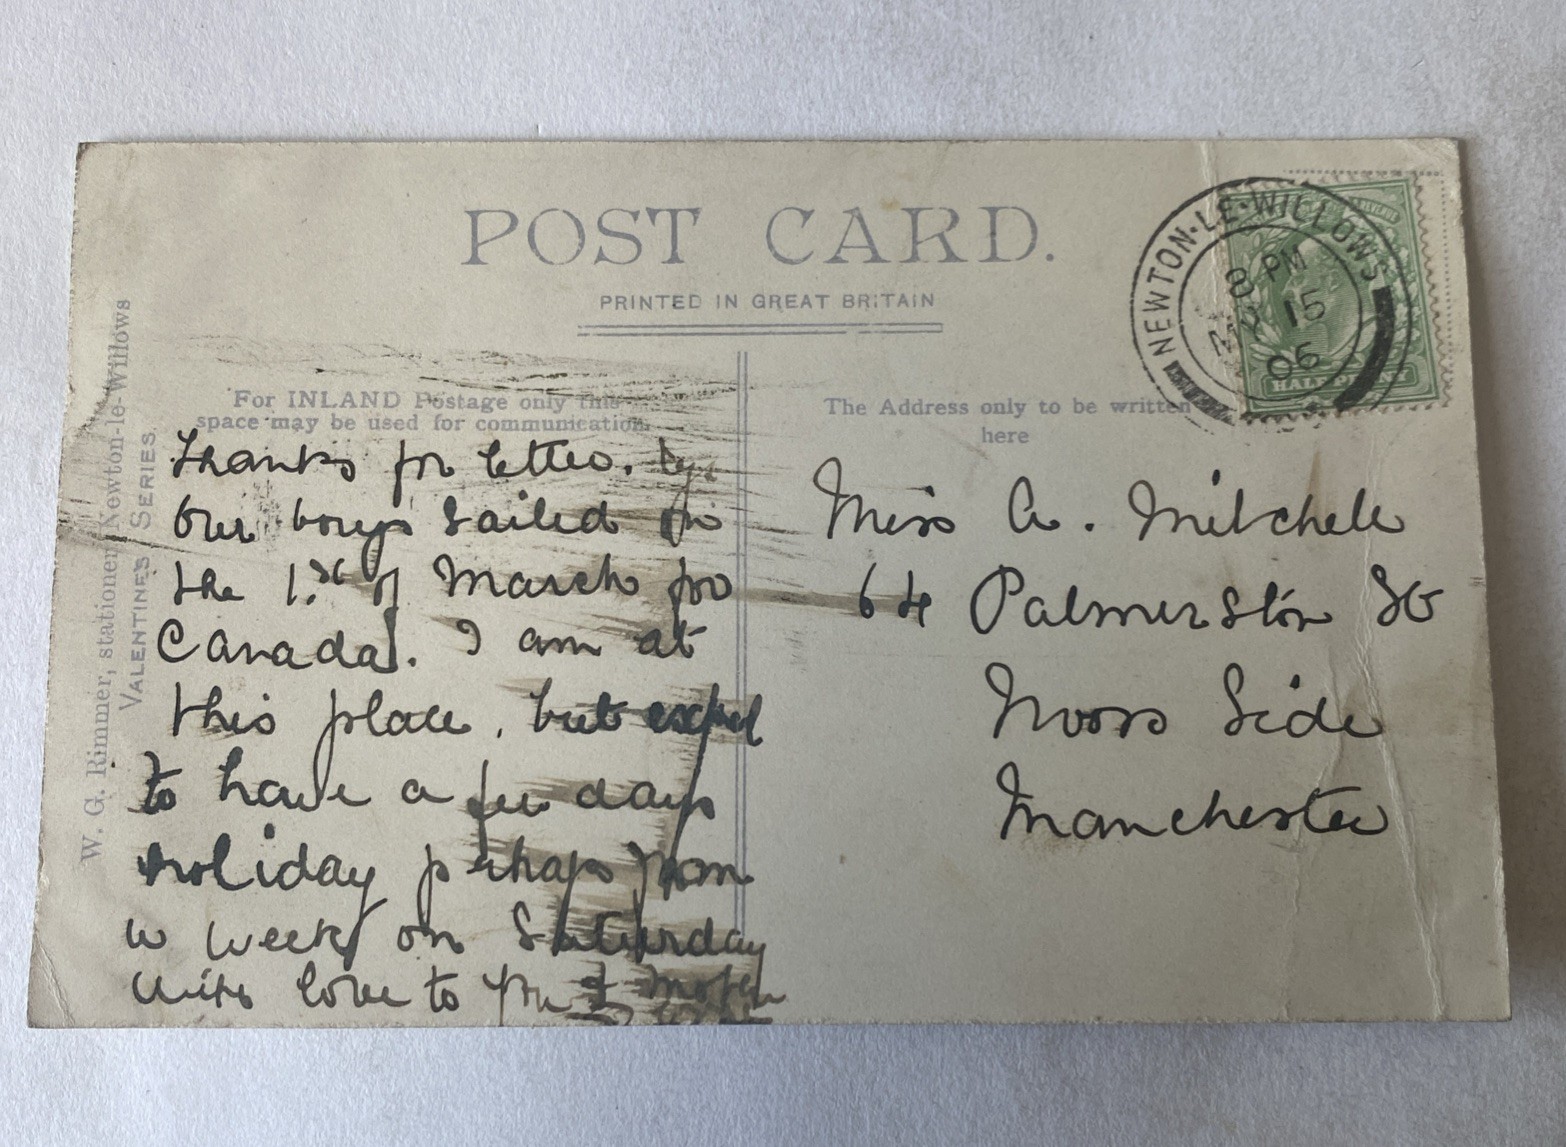 POST CARD.
PRINTED IN GREAT BRITAIN
NEWTON-LE-WILLOWS
8 PM
15
06
HALFPENNY
W. G. Rimmer, stationer, Newton-le-Willows
VALENTINES SERIES
For INLAND Postage only this
space may be used for communication.
The Address only to be written
here
Thanks for letter.
Our boys sailed on
the 1st of March for
Canada. I am at
this place, but expect
to have a few days
holiday perhaps from
week on Saturday
With love to you &
Miss A. Mitchell
64 Palmerston St
Moss Side
Manchester